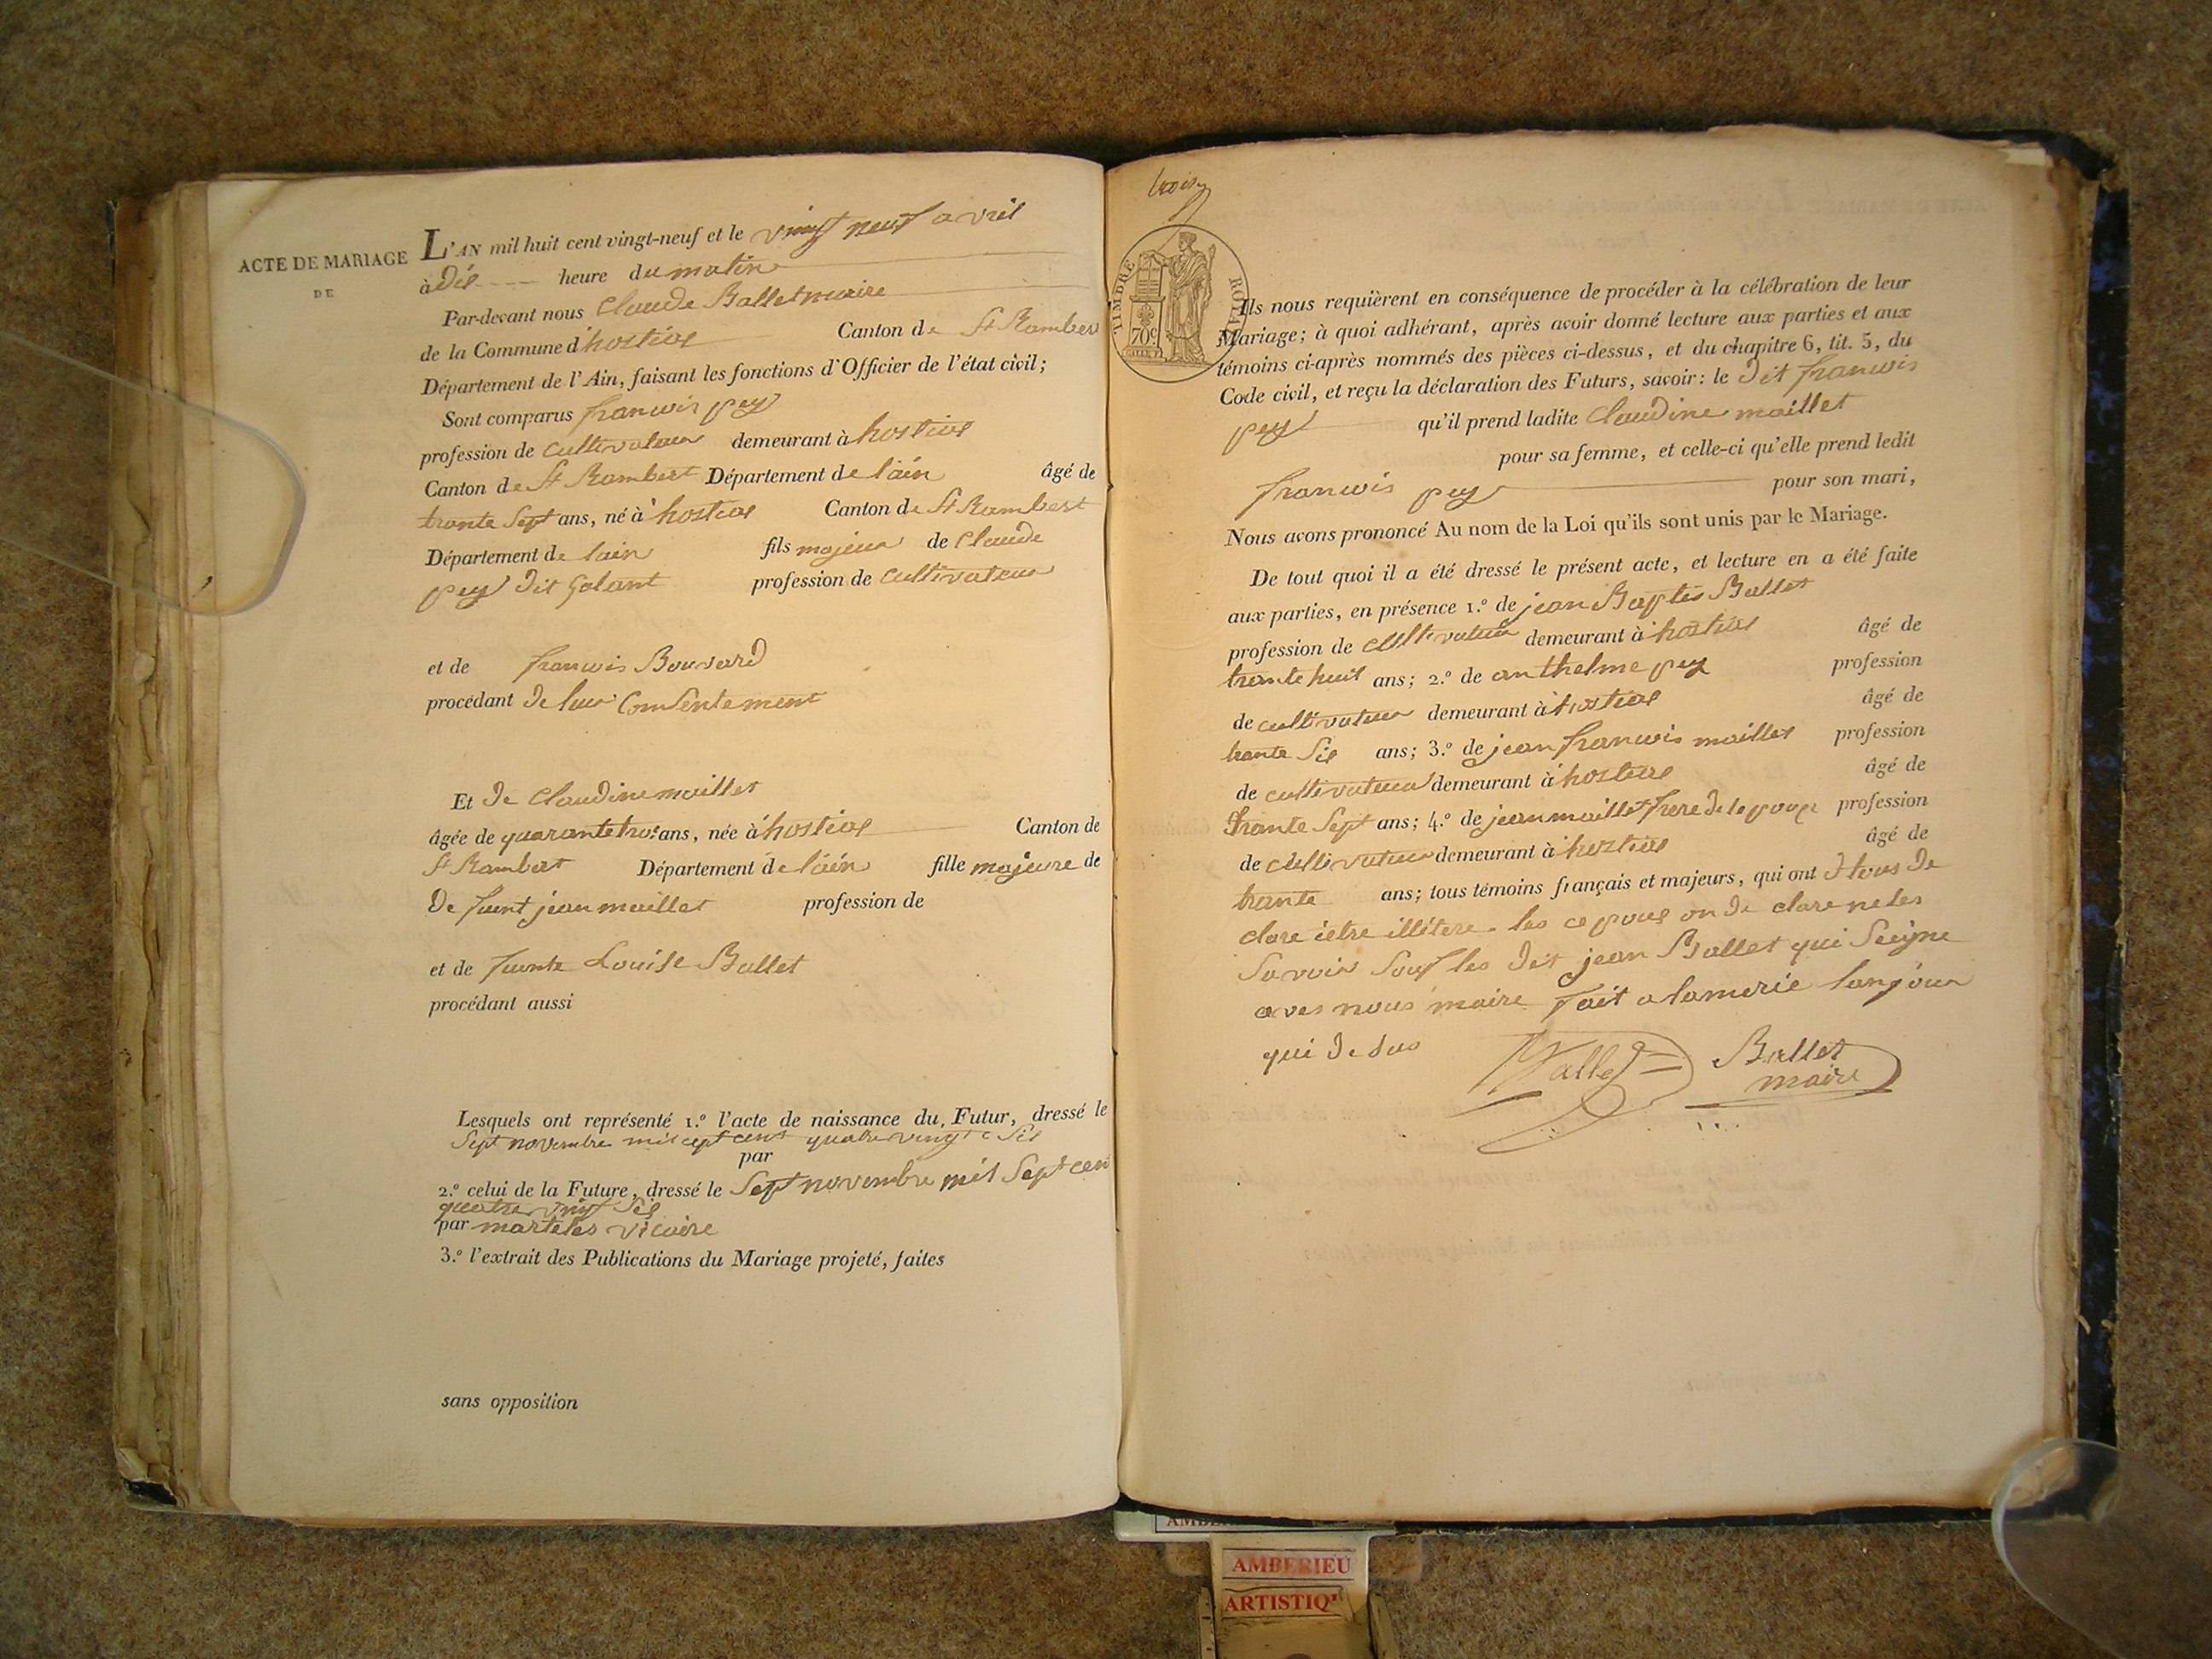 ACTE DE MARIAGE
DE
L'AN mil huit cent vingt-neuf et le vingt neuf avril
à dix heure du matin
Par-devant nous Claude Ballet maire
de la Commune d'hostias Canton de St Rambert
Département de l'Ain, faisant les fonctions d'Officier de l'état civil;
Sont comparus francois pey
profession de cultivateur demeurant à hostias
Canton de St Rambert Département de lain âgé de
trante sept ans, né à hostias Canton de St Rambert
Département de lain fils majeur de Claude
pey dit Galant profession de cultivateur
et de francois Bouvard
procédant de leur Consentement
Et de Claudine maillet
âgée de quarante trois ans, née à hostias Canton de
St Rambert Département de lain fille majeure de
De feunt jean maillet profession de
et de feunte Louise Ballet
procédant aussi
Lesquels ont représenté 1.º l'acte de naissance du Futur, dressé le
Sept novembre mil cept cent quatre vingt Six
par
2.º celui de la Future, dressé le Sept novembre mil Sept cen
quatre vingt Six
par martetes vicaire
3.º l'extrait des Publications du Mariage projeté, faites
sans opposition
trois
TIMBRE ROYAL
70 c
Ils nous requièrent en conséquence de procéder à la célébration de leur
Mariage; à quoi adhérant, après avoir donné lecture aux parties et aux
témoins ci-après nommés des pièces ci-dessus, et du chapitre 6, tit. 5, du
Code civil, et reçu la déclaration des Futurs, savoir: le dit francois
pey qu'il prend ladite Claudine maillet
pour sa femme, et celle-ci qu'elle prend ledit
francois pey pour son mari,
Nous avons prononcé Au nom de la Loi qu'ils sont unis par le Mariage.
De tout quoi il a été dressé le présent acte, et lecture en a été faite
aux parties, en présence 1.º de jean Baptis Ballet
profession de cultivateur demeurant à hostias âgé de
trante huit ans; 2.º de anthelme pey profession
de cultivateur demeurant à hostias âgé de
trante Six ans; 3.º de jean francois maillet profession
de cultivateur demeurant à hostias âgé de
trante Sept ans; 4.º de jean maillet frere de lepouse profession
de cultivateur demeurant à hostias âgé de
trante ans; tous témoins français et majeurs, qui ont tous de
clare
illétere les
on de clare
Savoir Souf les dit jean Ballet qui Seigne
aves nous maire fait a lamerie lanjour
qui desus
Ballet
Ballet
maire
AMBERIEU
ARTISTIQ